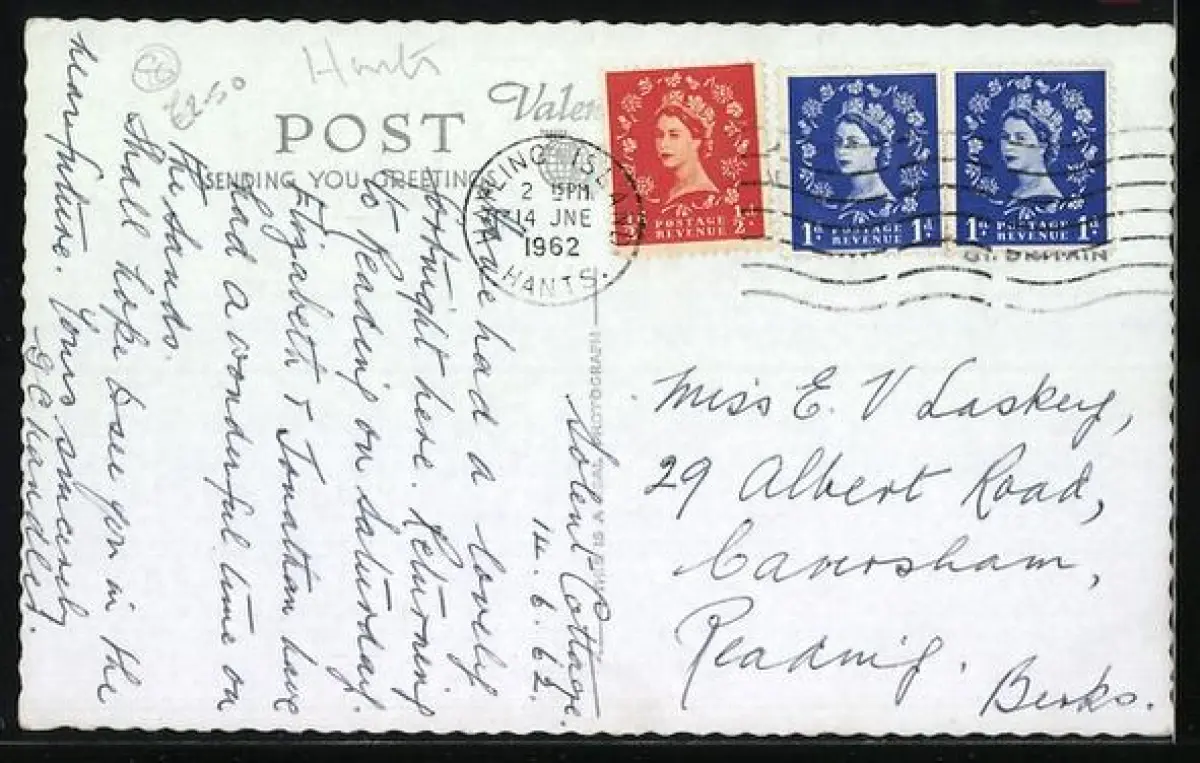 Hants
£2-50
Valen
POST
SENDING YOU GREETINGS
HAYLING ISLAND
2 15PM
14 JNE
1962
HANTS.
½d
POSTAGE
REVENUE
1d POSTAGE 1d
REVENUE
1d POSTAGE 1d
REVENUE
GT. BRITAIN
THIS IS A REAL PHOTOGRAPH
Solent Cottage.
14.6.62.
Have had a lovely
fortnight here. Returning
to Reading on Saturday.
Elizabeth & Jonathan have
had a wonderful time on
the sands.
Shall hope to see you in the
near future. Yours sincerely
G C Handley.
Miss E. V Laskey,
29 Albert Road,
Caversham,
Reading.
Berks.